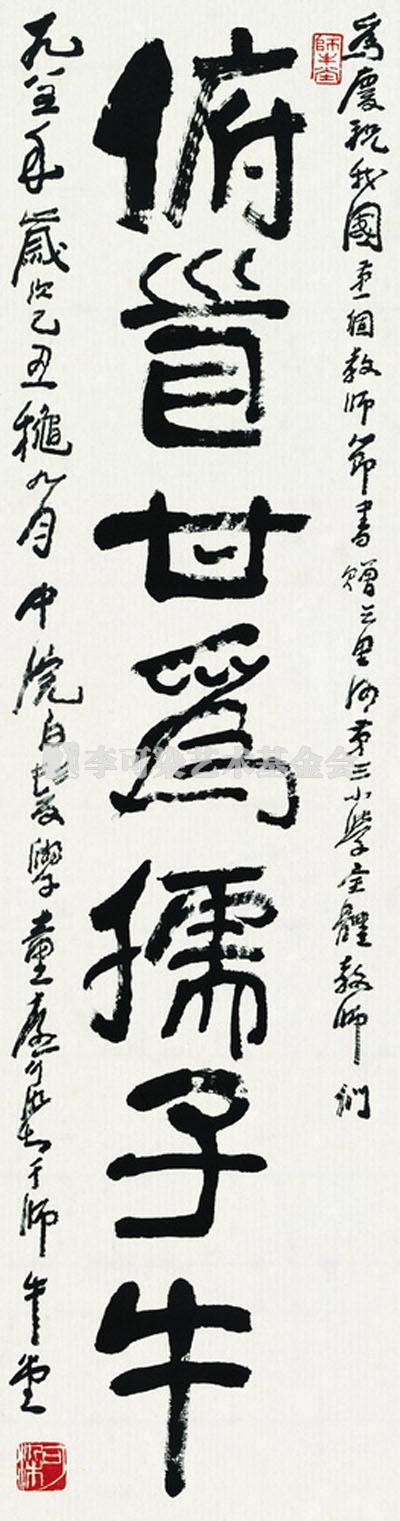 師牛堂
為慶祝我國第一個教師節書贈三里河第三小學全體教師們
俯首甘為孺子牛
一九八五年歲次乙丑穐九月中浣白髮學童李可染于師牛堂
可染
李可染艺术基金会